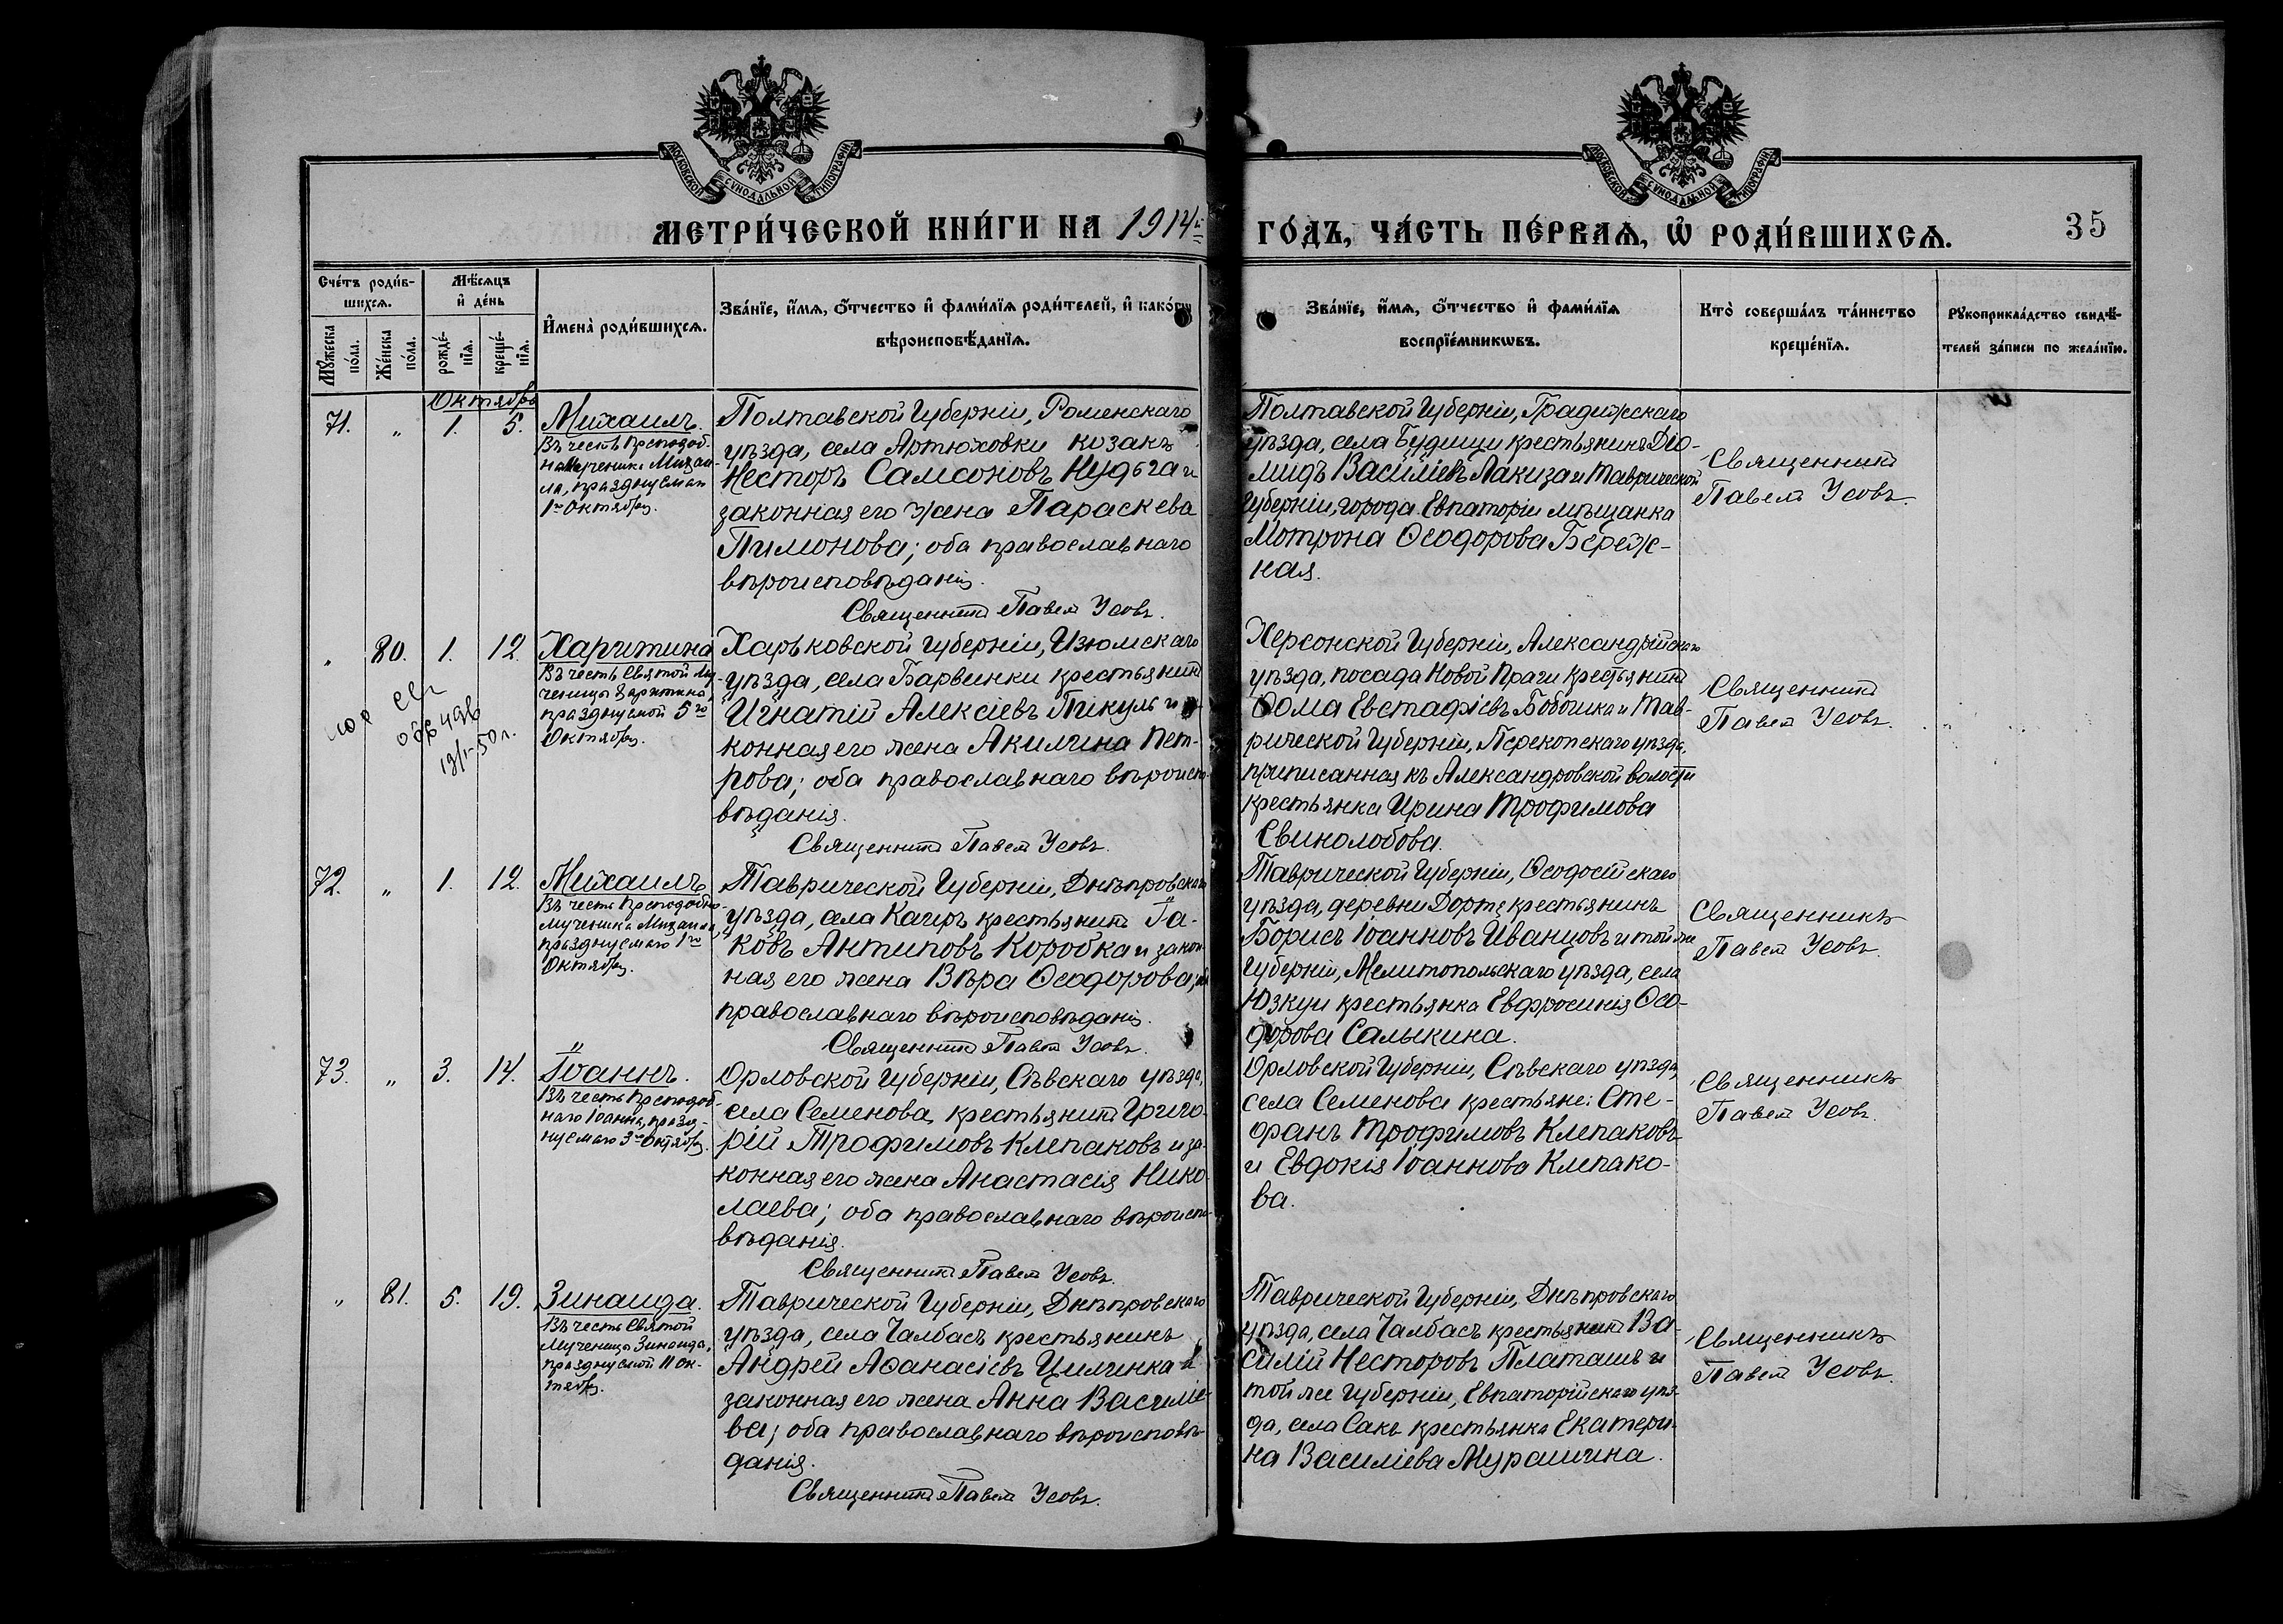 МОСКОВСКОЙ СУНОДАЛЬНОЙ ТИПОГРАФІИ
МОСКОВСКОЙ СУНОДАЛЬНОЙ ТИПОГРАФІИ
МЕТРИ́ЧЕСКОЙ КНИ́ГИ НА 1914й
ГО́ДЪ, ЧА́СТЬ ПЕ́РВАѦ, Ѡ҆ РОДИ́ВШИХСѦ.
35
Сче́тъ роди́в-
шихсѧ.
Мꙋ́жеска по́ла.
Же́нска по́ла.
Мѣ́сѧцъ
и҆ де́нь
рожде́-
нїѧ.
креще́-
нїѧ.
И҆мена̀ роди́вшихсѧ.
Зва́нїе, и҆́мѧ, ѻ҆́тчество и҆ фами́лїѧ роди́телей, и҆ како́гѡ
вѣроисповѣ́данїѧ.
Зва́нїе, и҆́мѧ, ѻ҆́тчество и҆ фами́лїѧ
воспрїе́мникѡвъ.
Кто̀ соверша́лъ та́инство
креще́нїѧ.
Рꙋкоприкла́дство свидѣ́-
телей за́писи по жела́нїю.
Октябрь
71. „ 1. 5.
Михаилъ.
Въ честь Преподоб-
номученика Михаи-
ла, празднуемаго
1го Октября.
Полтавской Губерніи, Роменскаго
уѣзда, села Артюховки козакъ
Несторъ Самсоновъ Нудьга и
законная его жена Параскева
Пимонова; оба православнаго
вѣроисповѣданія.
Священникъ Павелъ Усовъ.
Полтавской Губерніи, Градижскаго
уѣзда, села Будищи крестьянинъ Діо-
мидъ Василіевъ Лакиза и Таврической
Губерніи, города Евпаторіи мѣщанка
Мотрона Ѳеодорова Береж-
ная.
Священникъ
Павелъ Усовъ.
„ 80. 1. 12.
Харитина
Въ честь Святой Му-
ченицы Харитины,
празднуемой 5го
Октября.
13/I-50 г.
Харьковской Губерніи, Изюмскаго
уѣзда, села Барвинки крестьянинъ
Игнатій Алексіевъ Пикуль и
конная его жена Акилина Пет-
рова; оба православнаго вѣроиспо-
вѣданія.
Священникъ Павелъ Усовъ.
Херсонской Губерніи, Александрійскаго
уѣзда, посада Новой Праги крестьянинъ
Ѳома Евстафіевъ Бобошка и Тав-
рической Губерніи, Перекопскаго уѣзда,
приписанная къ Александровской волости
крестьянка Ирина Трофимова
Свинолобова.
Священникъ
Павелъ Усовъ.
72. „ 1. 12.
Михаилъ
Въ честь Преподобно-
мученика Михаила,
празднуемаго 1го
Октября.
Таврической Губерніи, Днѣпровскаго
уѣзда, села Каирь крестьянинъ Іа-
ковъ Антиповъ Коробка и закон-
ная его жена Вѣра Ѳеодорова; оба
православнаго вѣроисповѣданія.
Священникъ Павелъ Усовъ.
Таврической Губерніи, Ѳеодосійскаго
уѣзда, деревни Дорте крестьянинъ
Борисъ Іоанновъ Иванцовъ и той же
Губерніи, Мелитопольскаго уѣзда, села
Юзкуи крестьянка Евфросинія Ѳео-
дорова Салыкина.
Священникъ
Павелъ Усовъ.
73. „ 3. 14.
Іоаннъ.
Въ честь Преподоб-
наго Іоанна, празд-
нуемаго 3го Октября.
Орловской Губерніи, Сѣвскаго уѣзда,
села Семенова, крестьянинъ Григо-
рій Трофимовъ Клепаковъ и за-
конная его жена Анастасія Нико-
лаева; оба православнаго вѣроиспо-
вѣданія.
Священникъ Павелъ Усовъ.
Орловской Губерніи, Сѣвскаго уѣзда,
села Семенова крестьяне: Сте-
фанъ Трофимовъ Клепаковъ
и Евдокія Іоаннова Клепако-
ва.
Священникъ
Павелъ Усовъ.
„ 81. 5. 19.
Зинаида.
Въ честь Святой
Мученицы Зинаиды,
празднуемой 11 Ок-
тября.
Таврической Губерніи, Днѣпровскаго
уѣзда, села Чалбасъ крестьянинъ
Андрей Аѳанасіевъ Цилинка и
законная его жена Анна Василіе-
ва; оба православнаго вѣроисповѣ-
данія.
Священникъ Павелъ Усовъ.
Таврической Губерніи, Днѣпровскаго
уѣзда, села Чалбасъ крестьянинъ Ва-
силій Несторовъ Платашъ и
той же Губерніи, Евпаторійскаго уѣз-
да, села Сакъ крестьянка Екатери-
на Василіева Мурашина.
Священникъ
Павелъ Усовъ.